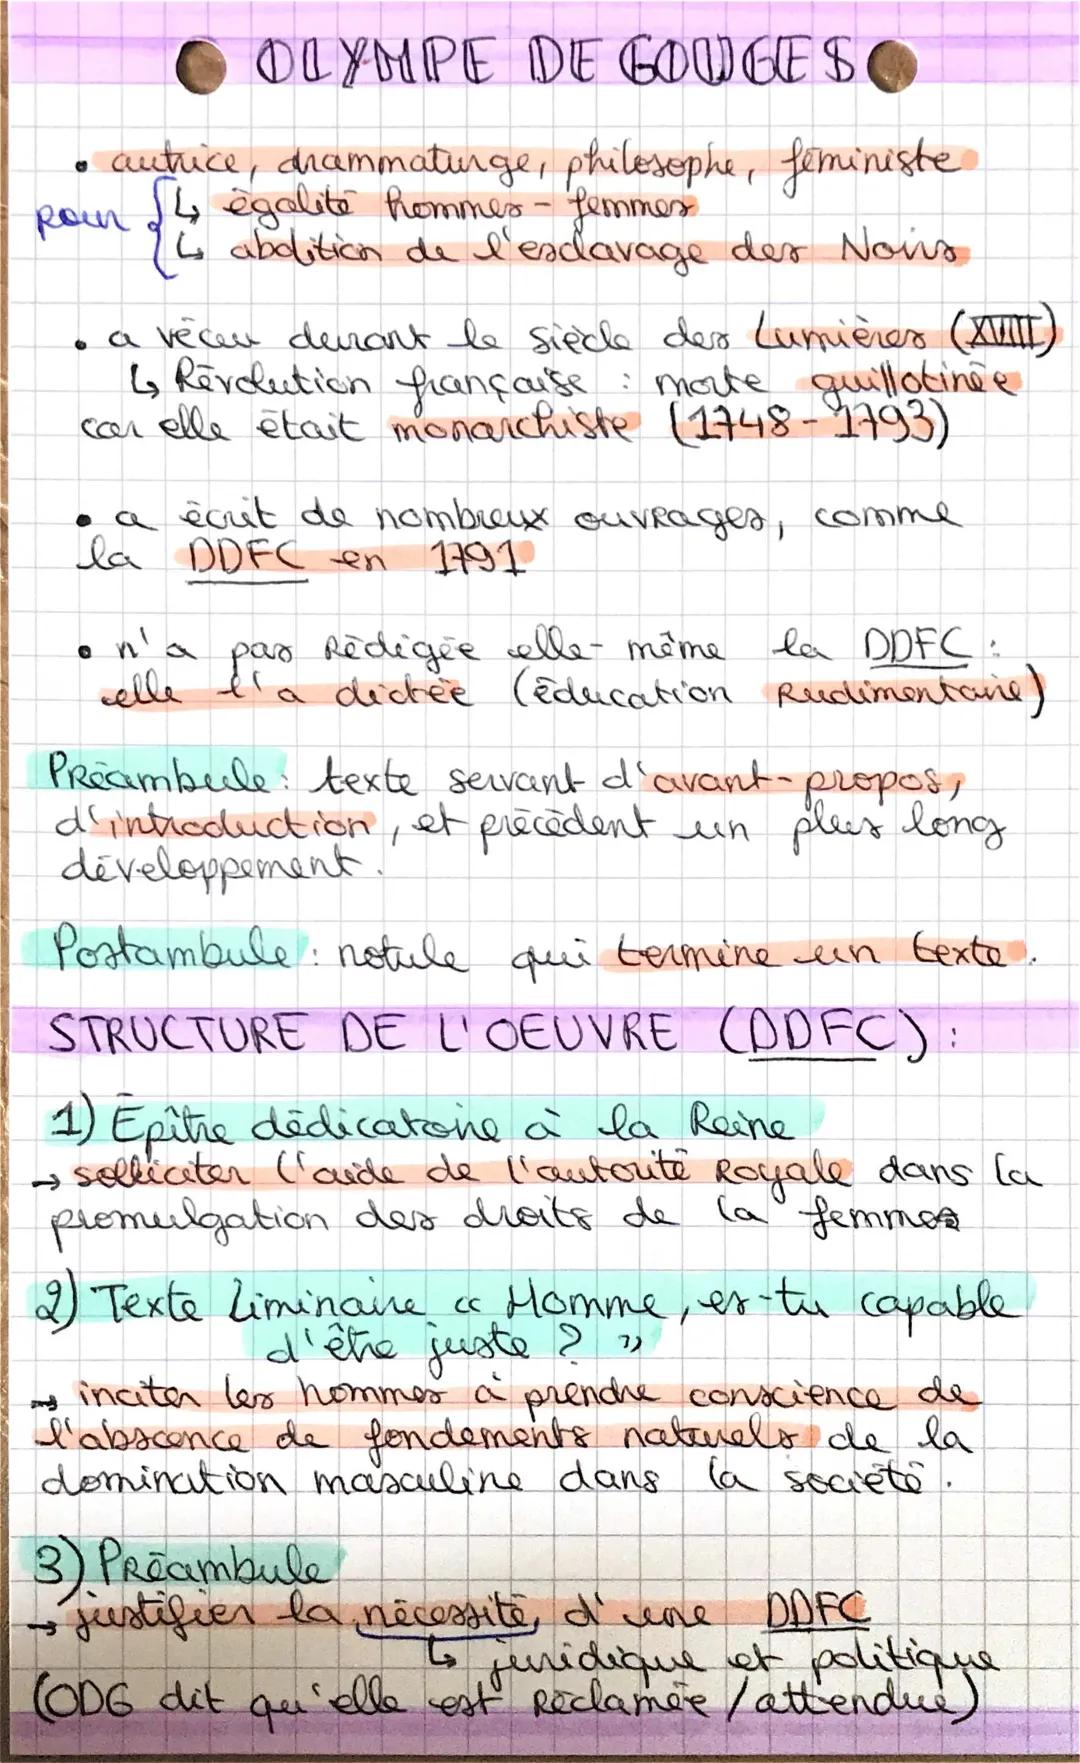 OLYMPE DE GOUGES
• autrice, drammaturge, philosophe, féministe
pour { ↳ égalité hommes - femmes
↳ abolition de l'esclavage des Noirs
• a vécu durant le siècle des Lumières (XVIII)
↳ Révolution française : morte guillotinée
car elle était monarchiste (1748 - 1793)
• a écrit de nombreux ouvrages, comme
la DDFC en 1791
• n'a pas rédigée elle-même la DDFC :
elle l'a dictée (éducation rudimentaire)
Préambule : texte servant d'avant-propos,
d'introduction, et précédent un plus long
développement.
Postambule : notule qui termine un texte.
STRUCTURE DE L'OEUVRE (DDFC) :
1) Épître dédicatoire à la Reine
→ solliciter l'aide de l'autorité Royale dans la
promulgation des droits de la femmes
2) Texte Liminaire « Homme, es-tu capable
d'être juste ? »
→ inciter les hommes à prendre conscience de
l'abscence de fondements naturels de la
domination masculine dans la société.
3) Préambule
→ justifier la nécessité, d'une DDFC
↳ juridique et politique
(ODG dit qu'elle est Réclamée / attendue)